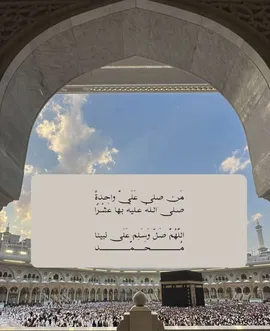 مَن صلى عَلَيَّ واحدةً
صلى الله عليه بها عشرًا
اللهُمَّ صَلِّ وَسَلِم عَلى نبينا
محمد